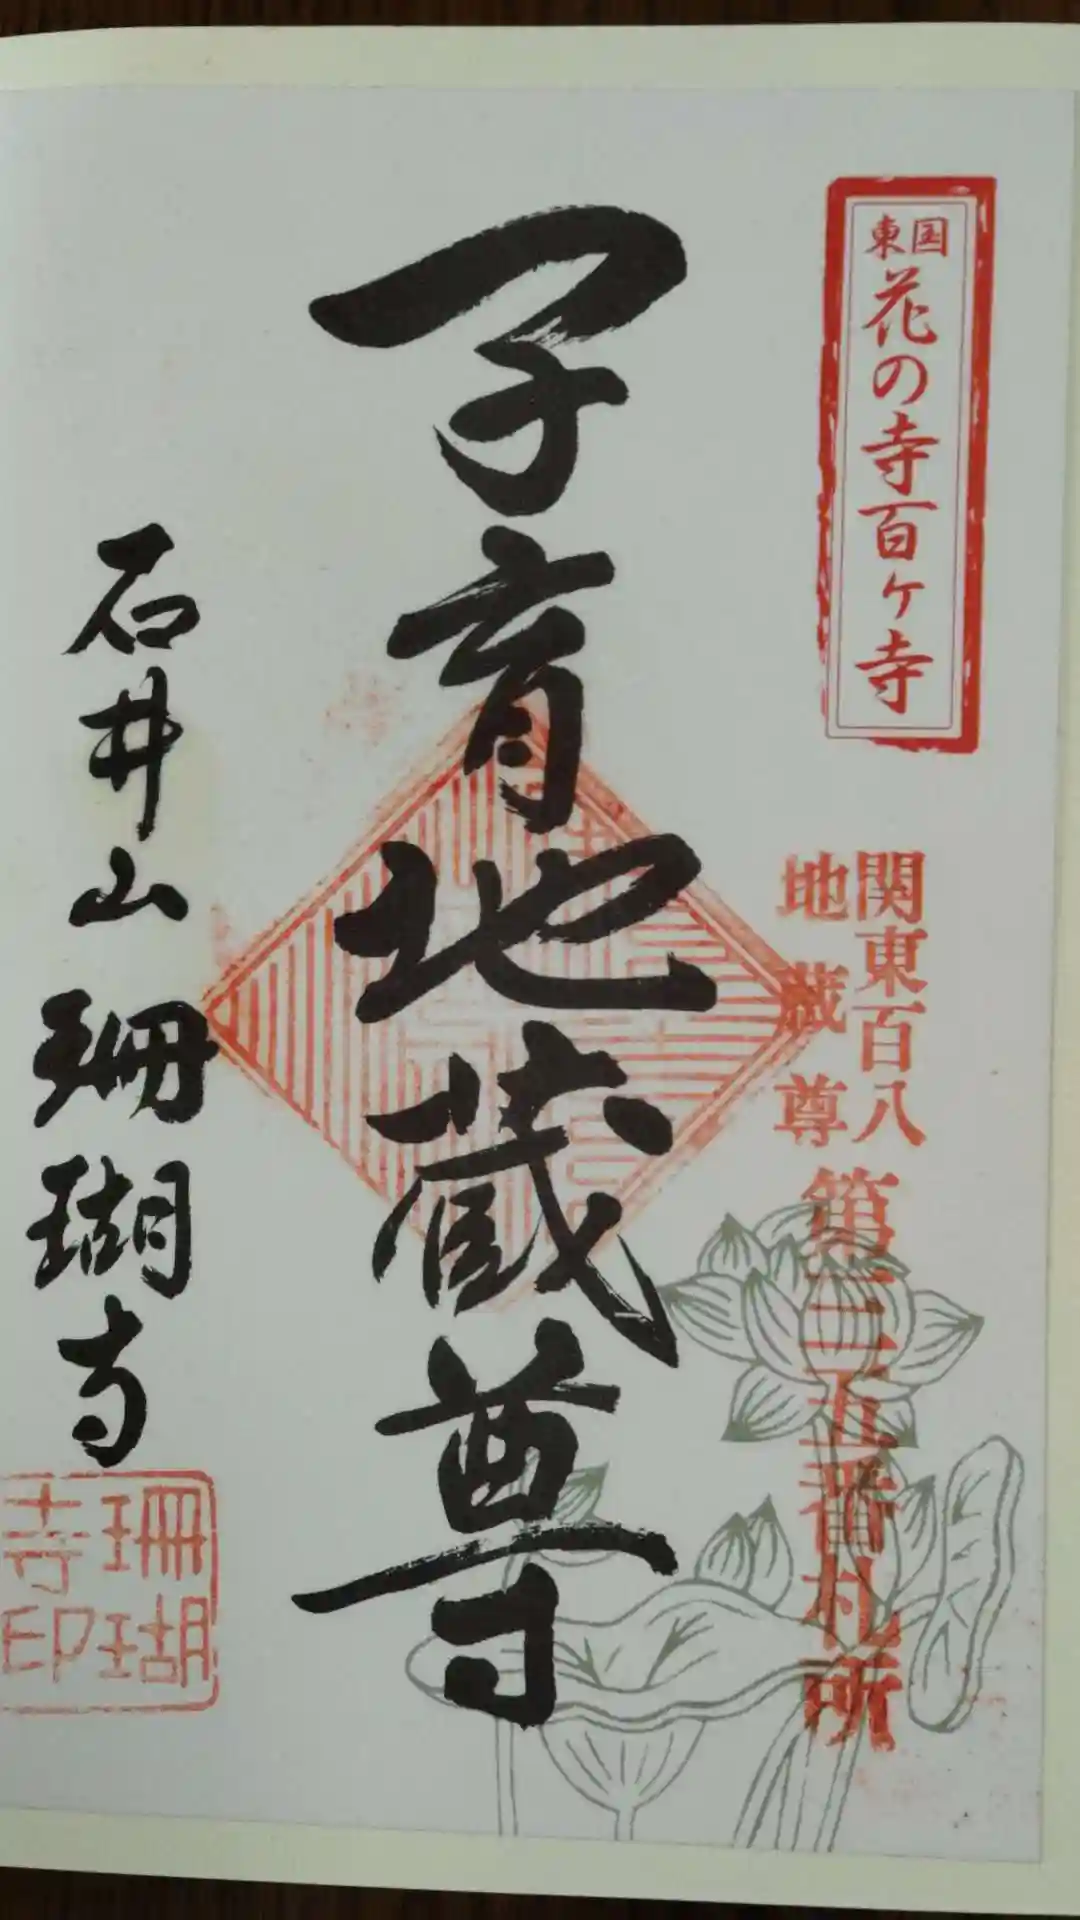 東国
花の寺百ケ寺
関東百八
地蔵尊
第三五番札所
子育地蔵尊
石井山 珊瑚寺
珊瑚
寺印